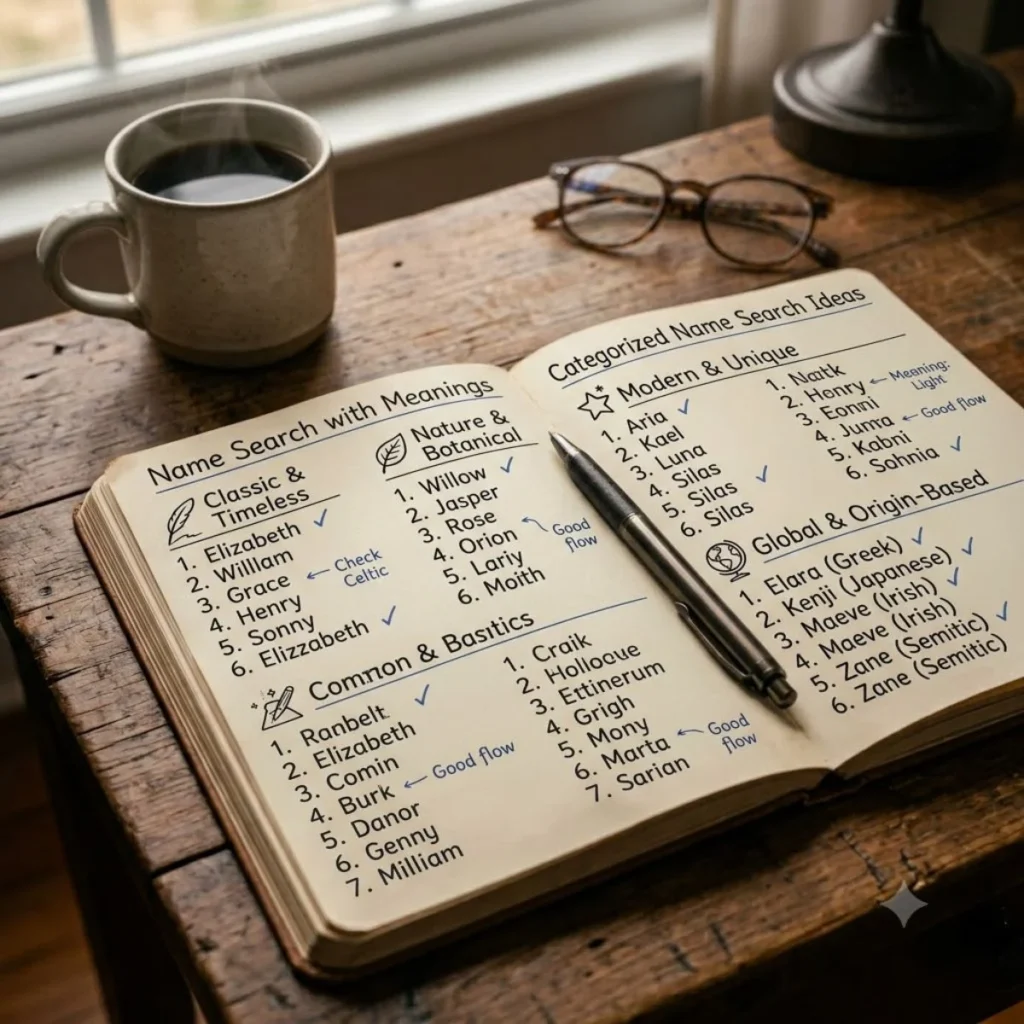 Name Search with Meanings
Classic &
Timeless
1. Elizabeth ✓
2. William
3. Grace ← Check
Celtic
4. Henry
5. Sonny
6. Elizzabeth ✓
Nature &
Botanical
1. Willow ✓
2. Jasper
3. Rose
4. Orion ← Good
flow
5. Lariy
6. Moith
Common & Basitics
1. Ranbelt ✓
2. Elizabeth
3. Comin
4. Burk ← Good flow
5. Danor
6. Genny
7. Milliam
1. Craik
2. Hollocue
3. Ettinerum
4. Grigh
5. Mony
6. Marta ← Good
flow
7. Sarian
Categorized Name Search Ideas
Modern & Unique
1. Aria ✓
2. Kael
3. Luna
4. Silas
5. Silas ✓
6. Silas
1. Natk
2. Honry ← Meaning:
Light
3. Eonni
4. Jumra ← Good flow
5. Kabni
6. Sohnia ✓
Global & Origin-Based
1. Elara (Greek) ✓
2. Kenji (Japanese) ✓
3. Maeve (Irish) ✓
4. Maeve (Irish)
5. Zane (Semitic) ✓
6. Zane (Semitic)